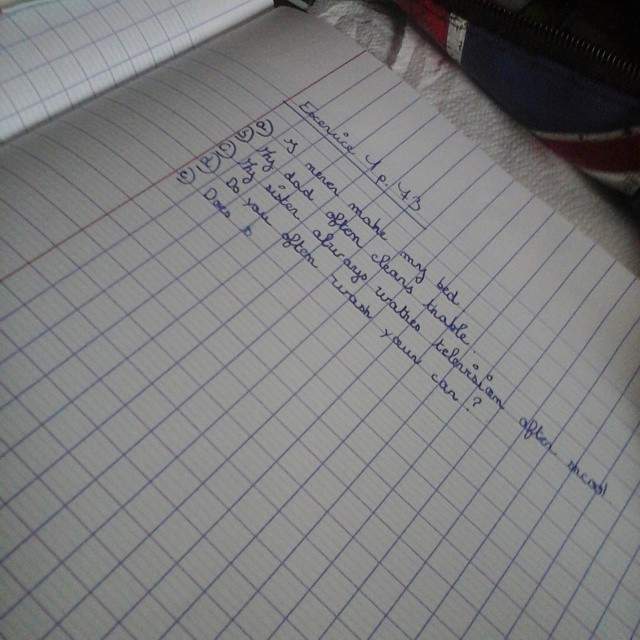 Exercice 4 p. 43
① I never make my bed
② My dad often clean table
③ My sister always watches television after school
④ Do you often wash your car?
⑤ Does